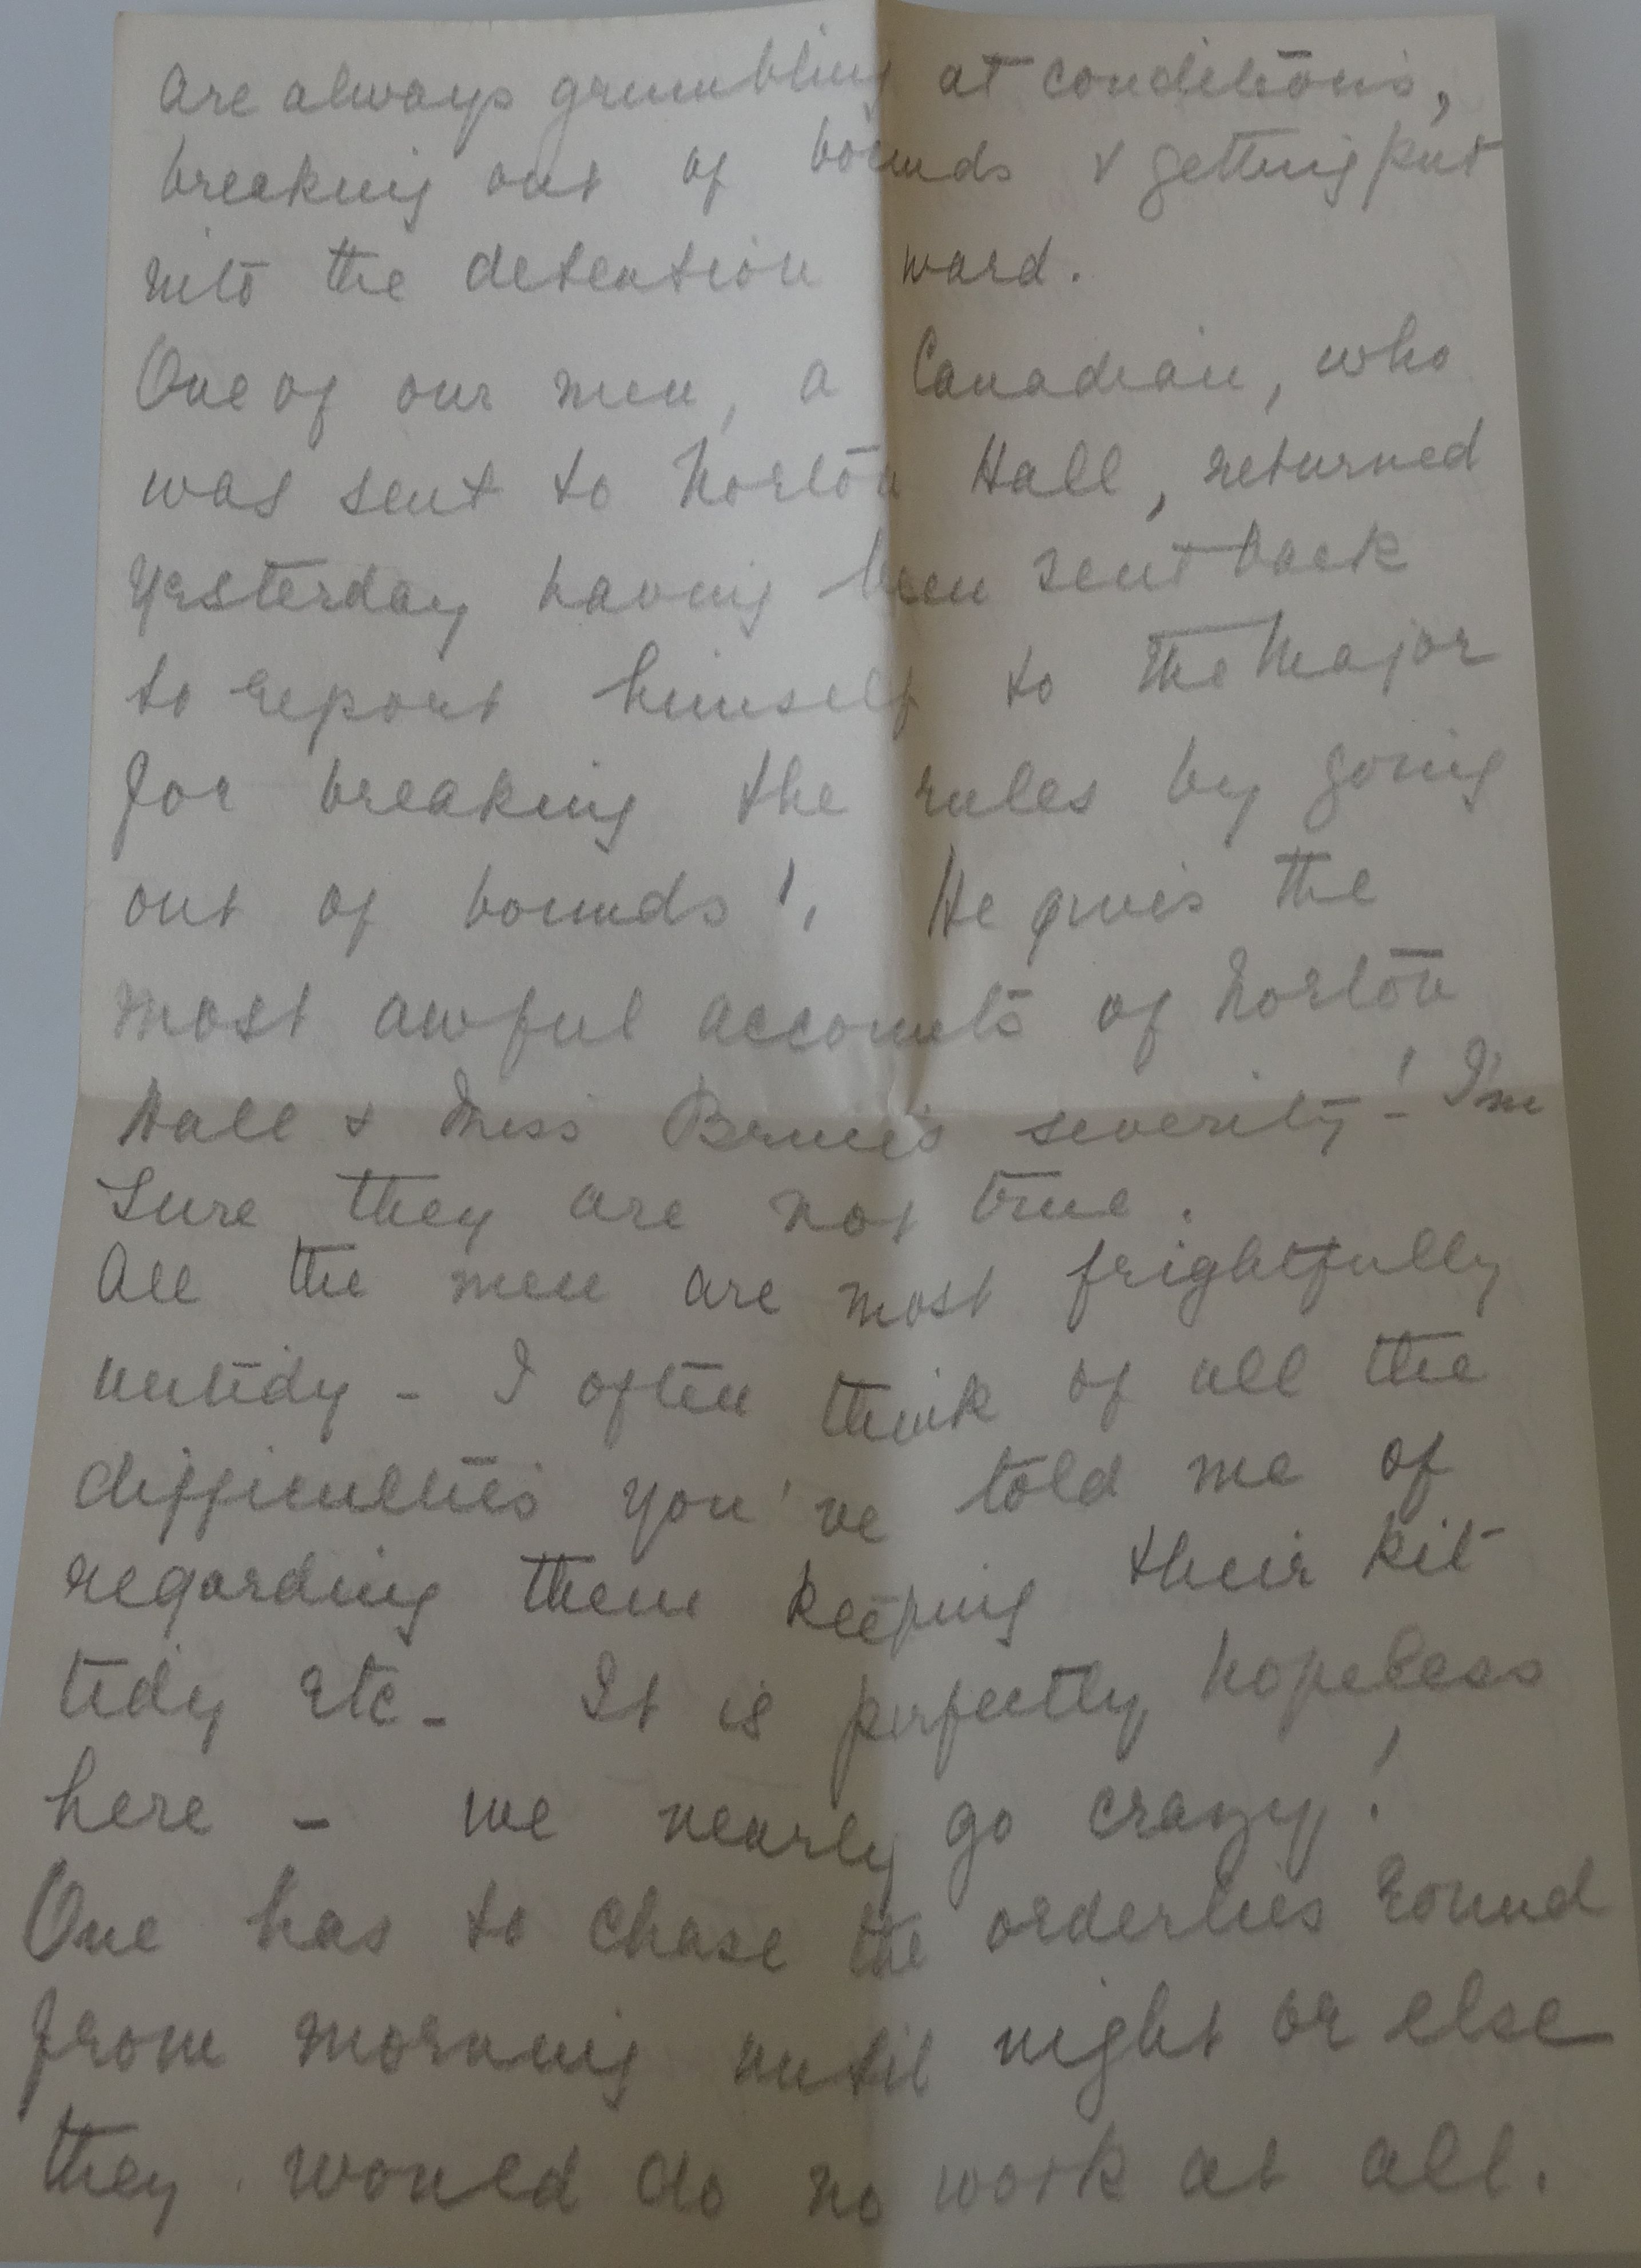 are always grumbling at conditions,
breaking out of bounds & getting put
into the detention ward.
One of our men, a Canadian, who
was sent to Norton Hall, returned
yesterday having been sent back
to report himself to the Major
for breaking the rules by going
out of bounds!. He gives the
most awful accounts of Norton
Hall & Miss Bruce's severity - ! I'm
sure they are not true.
All the men are most frightfully
untidy - I often think of all the
difficulties you've told me of
regarding them keeping their kit
tidy etc - It is perfectly hopeless
here - we nearly go crazy!
One has to chase the orderlies round
from morning until night or else
they would do no work at all.